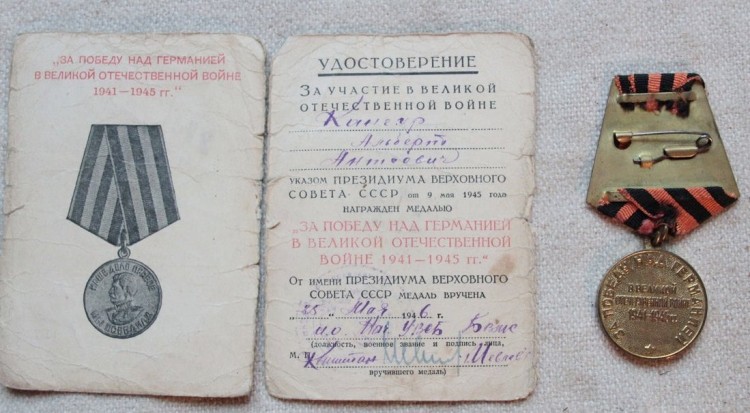 „ЗА ПОБЕДУ НАД ГЕРМАНИЕЙ
В ВЕЛИКОЙ ОТЕЧЕСТВЕННОЙ ВОЙНЕ
1941—1945 гг."
НАШЕ ДЕЛО ПРАВОЕ
МЫ ПОБЕДИЛИ
УДОСТОВЕРЕНИЕ
ЗА УЧАСТИЕ В ВЕЛИКОЙ
ОТЕЧЕСТВЕННОЙ ВОЙНЕ
Альберт
Антонович
УКАЗОМ ПРЕЗИДИУМА ВЕРХОВНОГО
СОВЕТА СССР от 9 мая 1945 года
НАГРАЖДЕН МЕДАЛЬЮ
„ЗА ПОБЕДУ НАД ГЕРМАНИЕЙ
В ВЕЛИКОЙ ОТЕЧЕСТВЕННОЙ
ВОЙНЕ 1941—1945 гг."
От имени ПРЕЗИДИУМА ВЕРХОВНОГО
СОВЕТА СССР МЕДАЛЬ ВРУЧЕНА
„25" Мая 1946
(должность, военное звание и подпись лица,
М. П. Капитан
вручившего медаль)
ЗА ПОБЕДУ НАД ГЕРМАНИЕЙ
В ВЕЛИКОЙ
ОТЕЧЕСТВЕННОЙ ВОЙНЕ
1941-1945 гг.